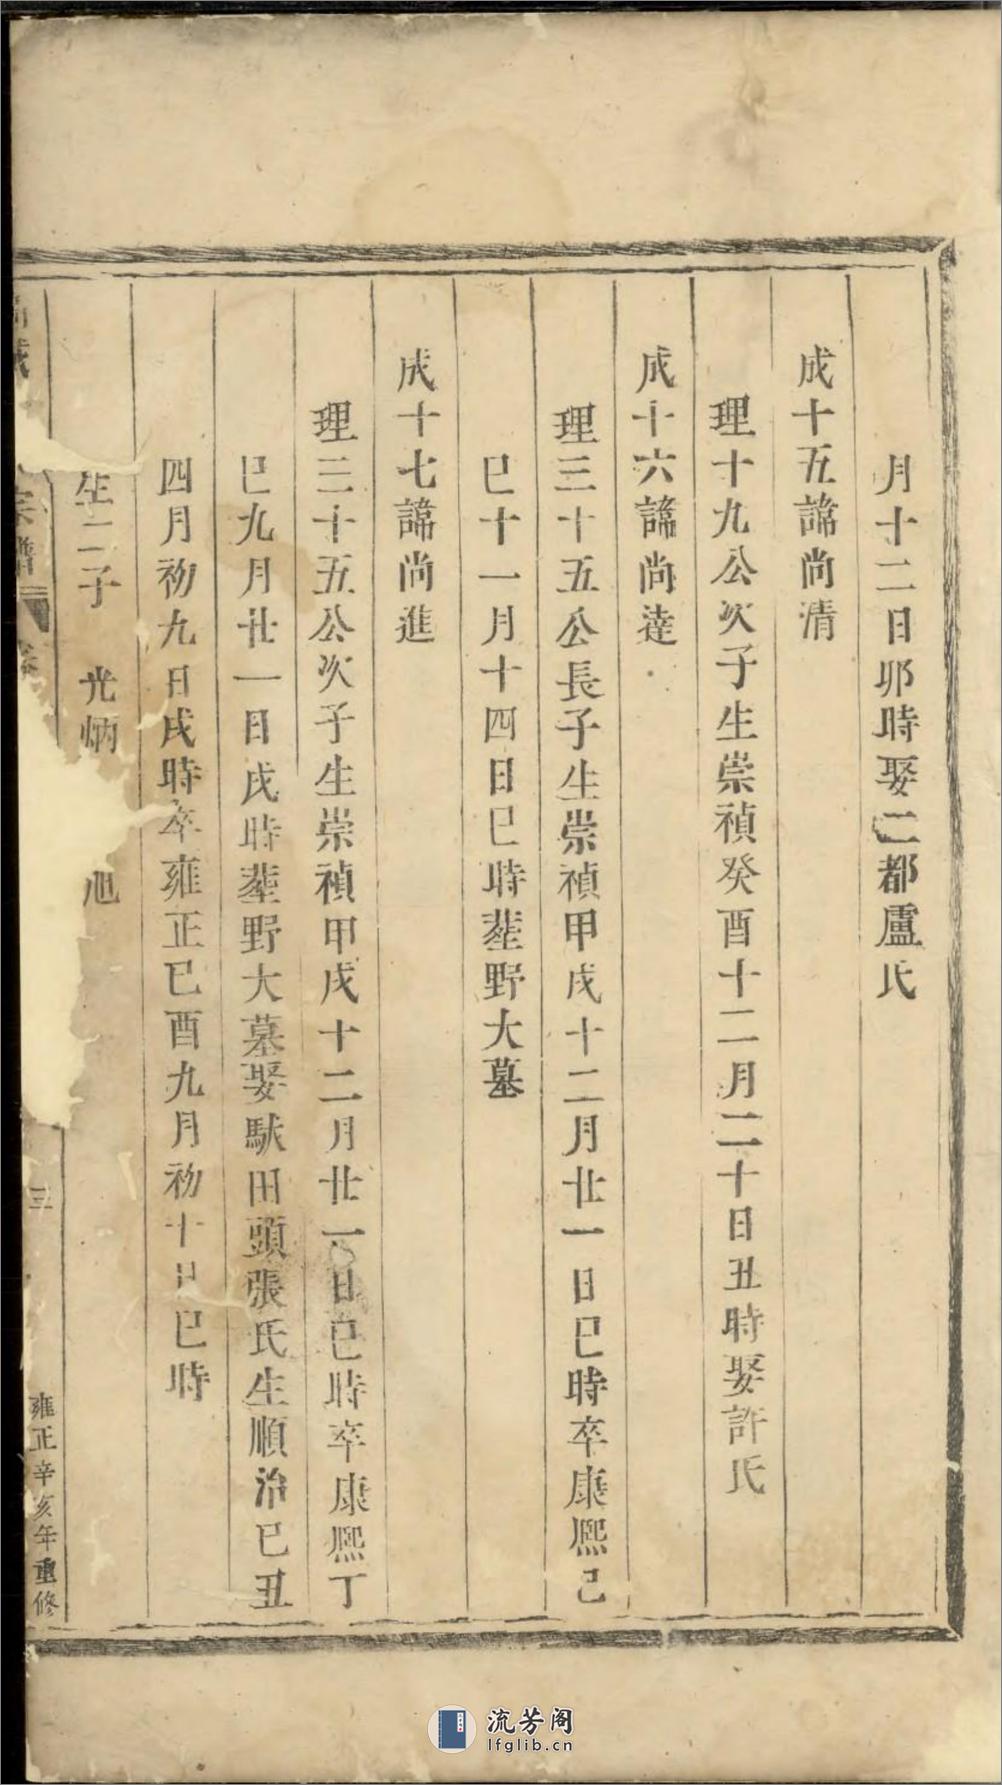 月十二日卯時娶二都盧氏
成十五諱尚清
理十九公次子生崇禎癸酉十二月二十日丑時娶許氏
成十六諱尚達
理三十五公長子生崇禎甲戌十二月廿一日巳時卒康熙己
巳十一月十四日巳時塟野大墓
成十七諱尚進
理三十五公次子生崇禎甲戌十二月廿一日巳時卒康熙丁
巳九月廿一日戌時塟野大墓娶馱田頭張氏生順治己丑
四月初九日戌時卒雍正己酉九月初十日巳時
生二子 光炳 旭
宗譜 三 雍正辛亥年重修
流芳阁
lfglib.cn